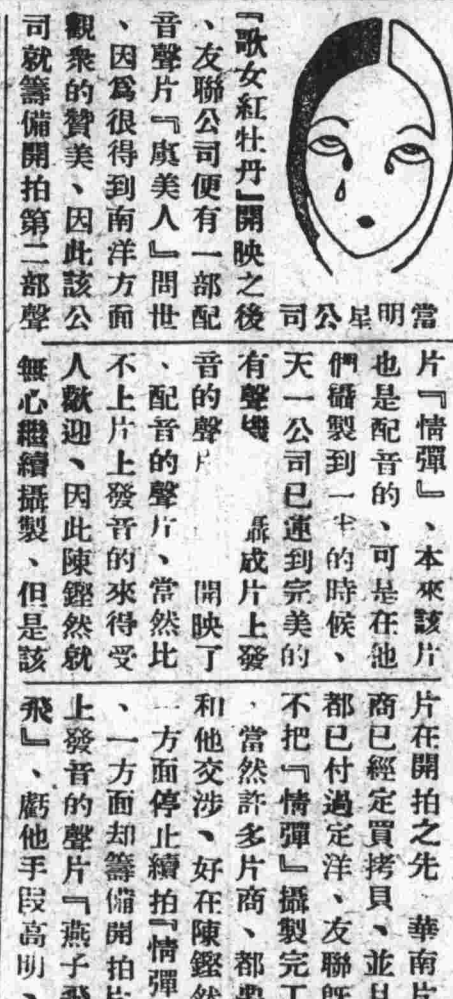 當明星公司
『歌女紅牡丹』開映之後
、友聯公司便有一部配
音聲片『虞美人』問世
、因爲很得到南洋方面
觀衆的贊美、因此該公
司就籌備開拍第二部聲
片『情彈』、本來該片
也是配音的、可是在他
們攝製到一半的時候、
天一公司已運到完美的
有聲機 攝成片上發
音的聲片 開映了
、配音的聲片、當然比
不上片上發音的來得受
人歡迎、因此陳鏗然就
無心繼續攝製、但是該
片在開拍之先 華南片
商已經定買拷貝、並且
都已付過定洋、友聯旣
不把『情彈』攝製完工
、當然許多片商、都要
和他交涉、好在陳鏗然
一方面停止續拍『情彈
、一方面却籌備開拍片
上發音的聲片『燕子飛
飛』、虧他手段高明、